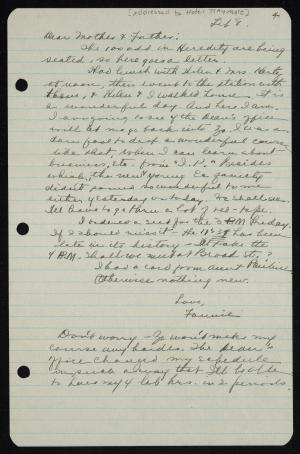 [addressed to Hotel
4
Feb 8.
Dear Mother & Father:
The 100 odd in Heredity are being
seated, so here goes a letter.
Had lunch with Helen & Mrs. Hertz
at noon, then went to the station with
them, & Ruth & I walked home. It is
a wonderful day. And here I am.
I am going to see if the Dean's office
will let me go back into Zo. I was a
darn fool to drop a wonderful course
like that, when I can learn about
business, etc. from "I.P." Besides
which, the new young Ec faculty
didn't sound so wonderful to me
either yesterday or today. We shall see.
I'll have to go thru a lot of red-tape.
I ordered a seat for the 3 PM Friday.
If I should miss it - the 11:39 has been
late in its history - I'll take the
4 P.M. Shall we meet at Broad St.?
I had a card from Aunt Pauline
Otherwise nothing new.
Love,
Fannie
Don't worry - Zo won't make my
course any harder. The Dean's
Office changed my schedule
in such a way that I'll be able
to have my 4 lab hrs. in 2 periods.